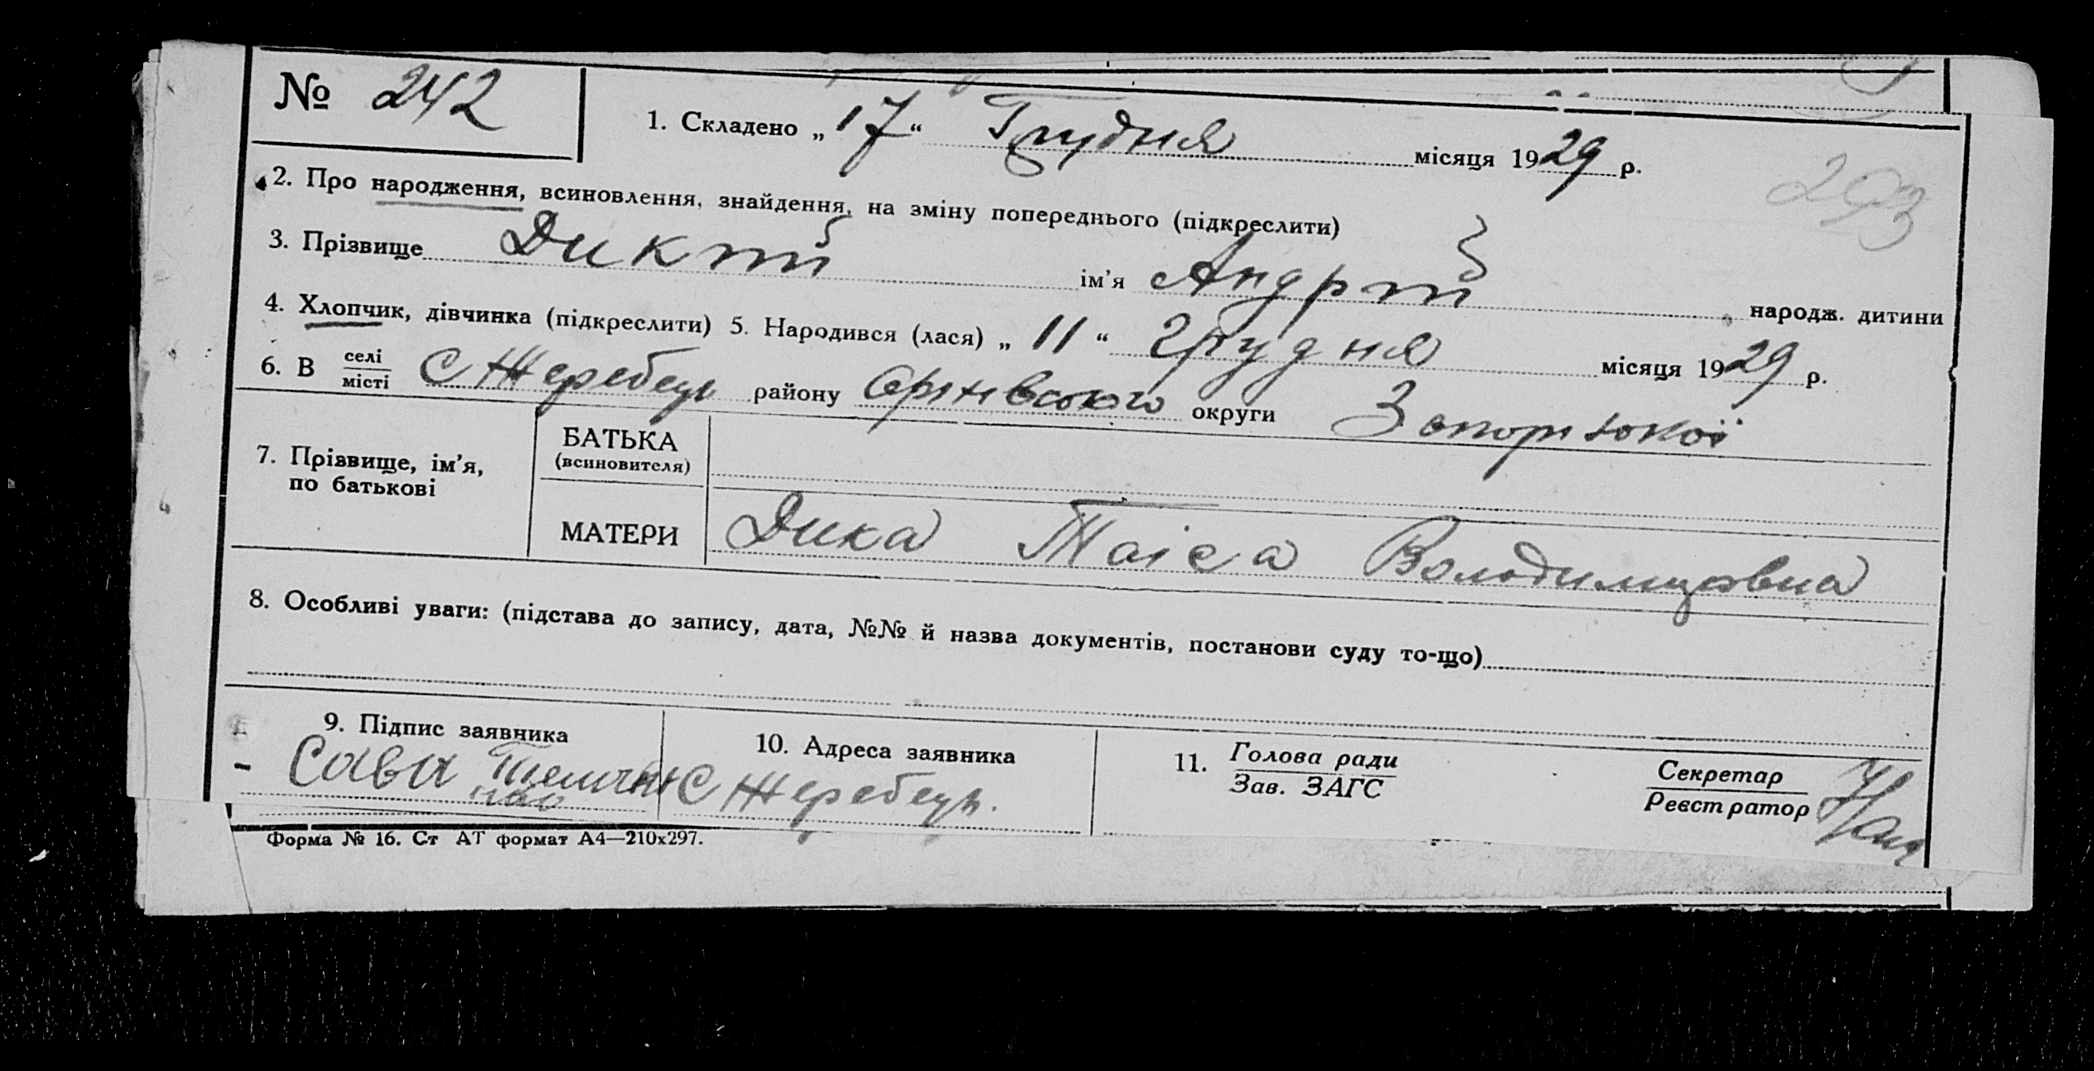 № 242
1. Складено „17“ Грудня місяця 1929 р.
293
2. Про народження, всиновлення, знайдення, на зміну попереднього (підкреслити)
3. Прізвище Дикий ім’я Андрій народж. дитини
4. Хлопчик, дівчинка (підкреслити) 5. Народився (лася) „11“ грудня місяця 1929 р.
6. В селі С Жеребець району Оріхівського округи Запорізької
місті
7. Прізвище, ім’я,
по батькові
БАТЬКА
(всиновителя)
МАТЕРИ Дика Таіса Володимировна
8. Особливі уваги: (підстава до запису, дата, №№ й назва документів, постанови суду то-що)
9. Підпис заявника
Сава
10. Адреса заявника
С Жеребець.
11. Голова ради
Зав. ЗАГС
Секретар
Реєстратор
Форма № 16. Ст АТ формат А4—210х297.